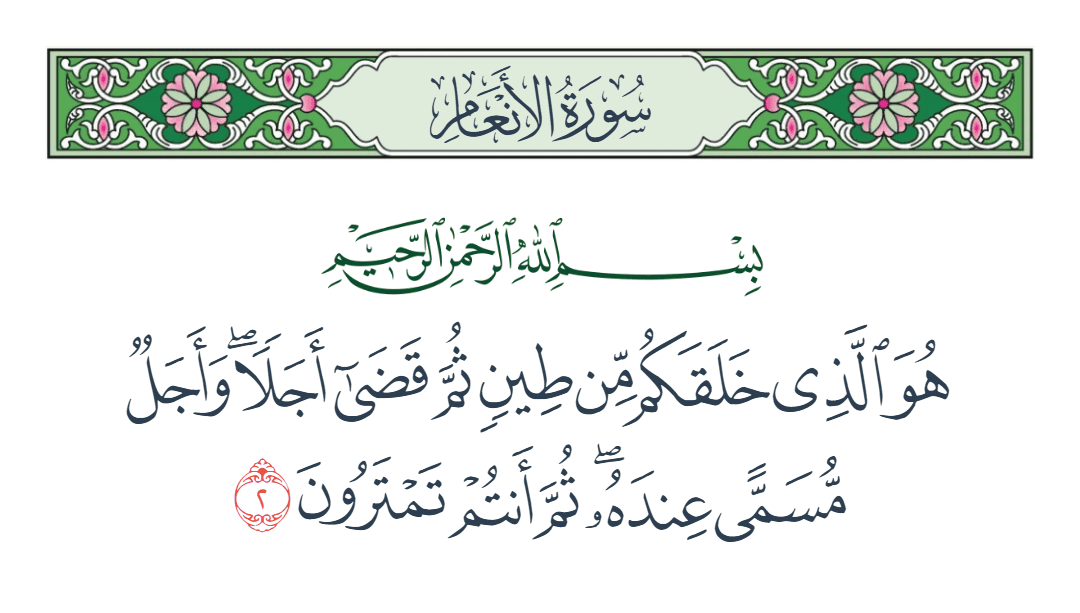 سُورَةُ الأَنْعَامِ
بِسْمِ ٱللَّهِ ٱلرَّحْمَٰنِ ٱلرَّحِيمِ
هُوَ ٱلَّذِى خَلَقَكُم مِّن طِينٍ ثُمَّ قَضَىٰٓ أَجَلًاۖ وَأَجَلٌ
مُّسَمًّى عِندَهُۥۖ ثُمَّ أَنتُمْ تَمْتَرُونَ ٢